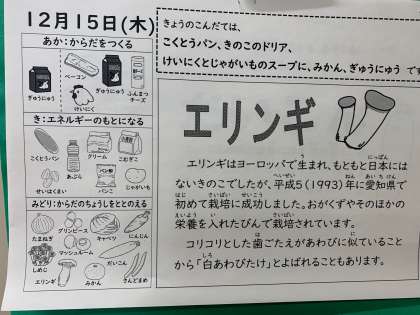 12月15日(木)
あか:からだをつくる
ぎゅうにゅう
ベーコン
けいにく
ぎゅうにゅう
ふんまつチーズ
き:エネルギーのもとになる
こくとうパン
あぶら
クリーム
こむぎこ
せいはくまい
パンこ
じゃがいも
みどり:からだのちょうしをととのえる
たまねぎ
グリンピース
キャベツ
にんじん
しめじ
マッシュルーム
だいこん
エリンギ
みかん
さんどまめ
きょうのこんだては、
こくとうパン、きのこのドリア、
けいにくとじゃがいものスープに、みかん、ぎゅうにゅう です
エリンギ
エリンギはヨーロッパで生まれ、もともと日本には
ないきのこでしたが、平成5(1993)年に愛知県で
初めて栽培に成功しました。おがくずやそのほかの
栄養を入れたびんで栽培されています。
コリコリとした歯ごたえがあわびに似ていること
から「白あわびたけ」とよばれることもあります。